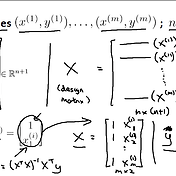 es (x^{(1)}, y^{(1)}), ..., (x^{(m)}, y^{(m)}) ; n
∈ ℝ^{n+1}
X =
(design
matrix)
(x^{(1)})
(x^{(2)})
⋮
(x^{(m)})
m x (n+1)
) = [1
x^{(i)}]
X = [1 x_1^{(1)}
1 x_1^{(2)}
⋮ ⋮
1 x_1^{(m)}]
m x 2
y
= (X^T X)^{-1} X^T y